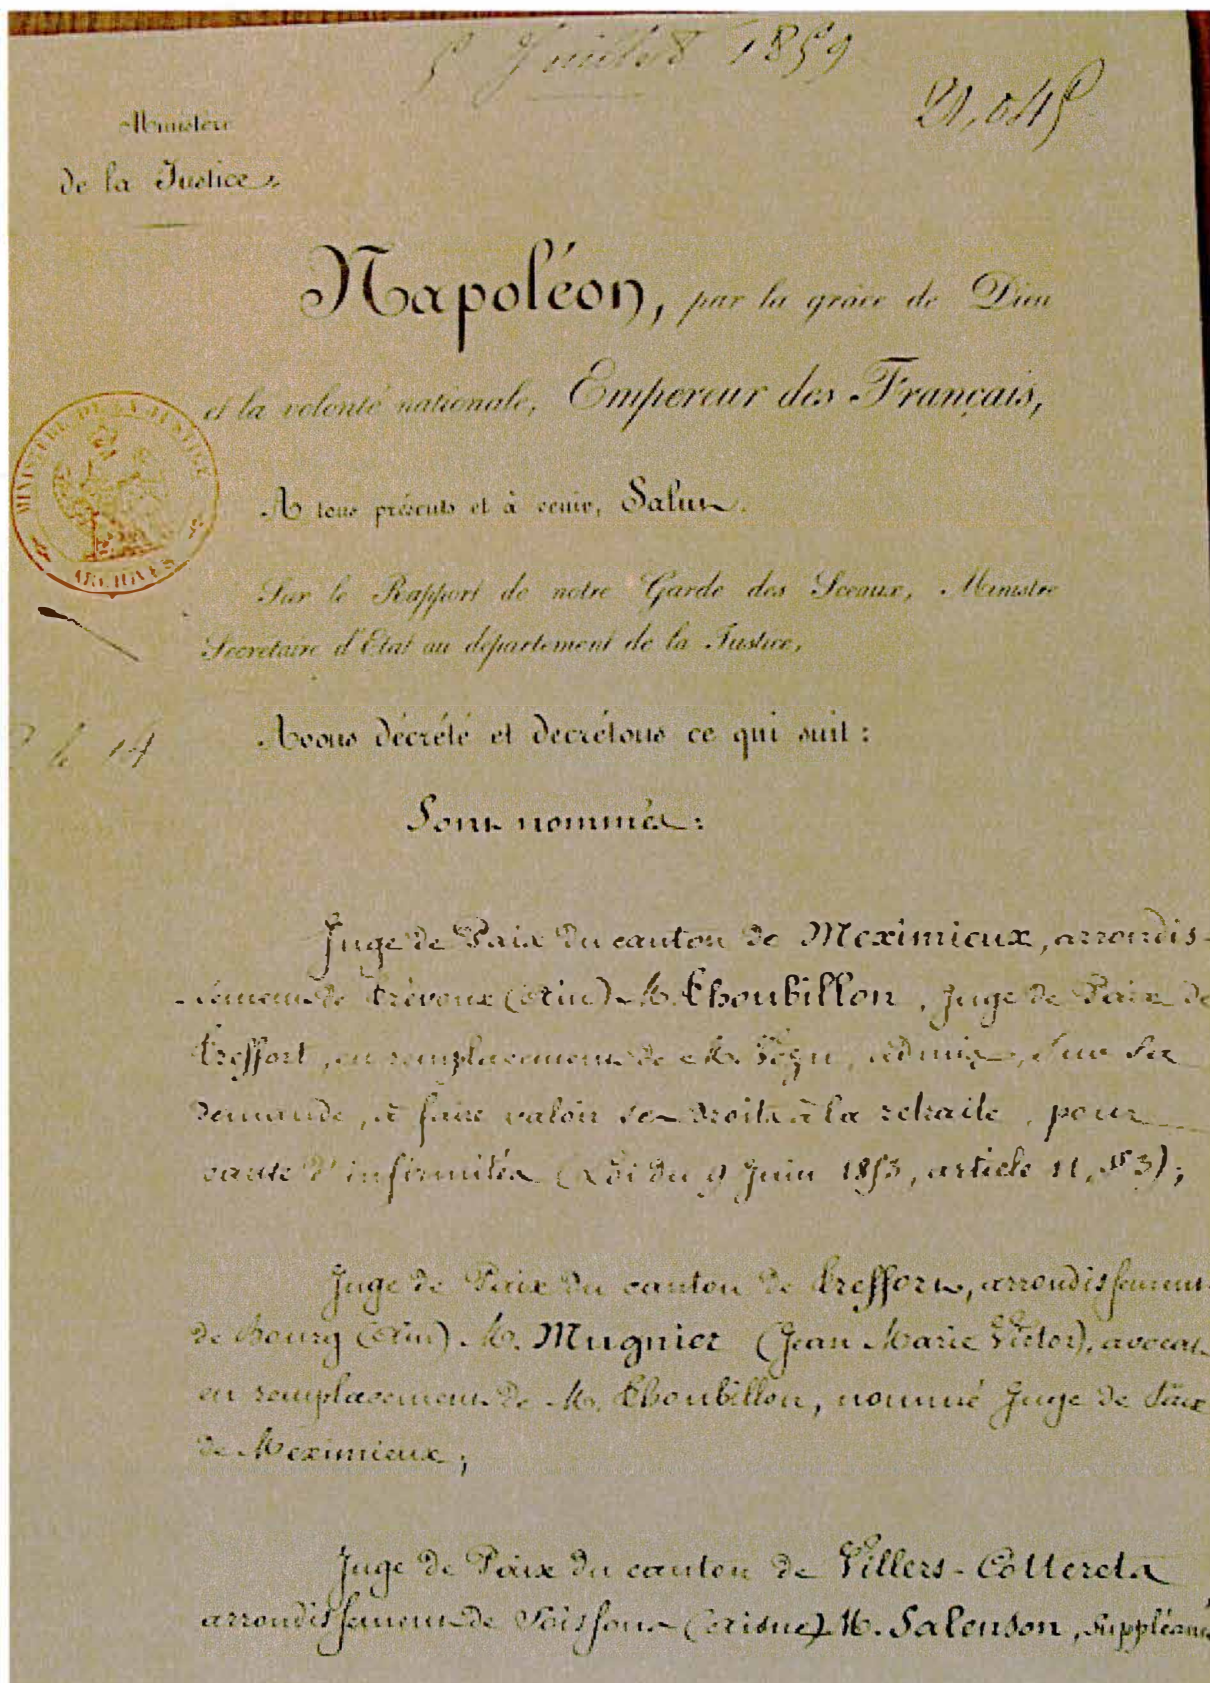 5 Juillet 1859
21,045
Ministère
de la Justice
Napoléon, par la grâce de Dieu
et la volonté nationale, Empereur des Français,
MINISTÈRE DE LA JUSTICE
ARCHIVES
A tous présents et à venir, Salut.
Sur le Rapport de notre Garde des Sceaux, Ministre
Secrétaire d'Etat au département de la Justice,
le 14
Avons décrété et décrétons ce qui suit :
Sont nommés :
Juge de Paix du canton de Meximieux, arrondis-
-sement de Trévoux (Ain) M. Thoubillon, Juge de Paix de
Treffort, en remplacement de M. admis, sur sa
demande, à faire valoir ses droits à la retraite, pour
cause d'infirmités (Loi du 9 Juin 1853, article 11, § 3);
Juge de Paix du canton de Treffort, arrondissement
de Bourg (Ain) M. Mugnier (Jean Marie Victor), avocat,
en remplacement de M. Thoubillon, nommé Juge de Paix
de Meximieux;
Juge de Paix du canton de Villers-Cotterets
arrondissement de Soissons (Aisne) M. Salenson, suppléant